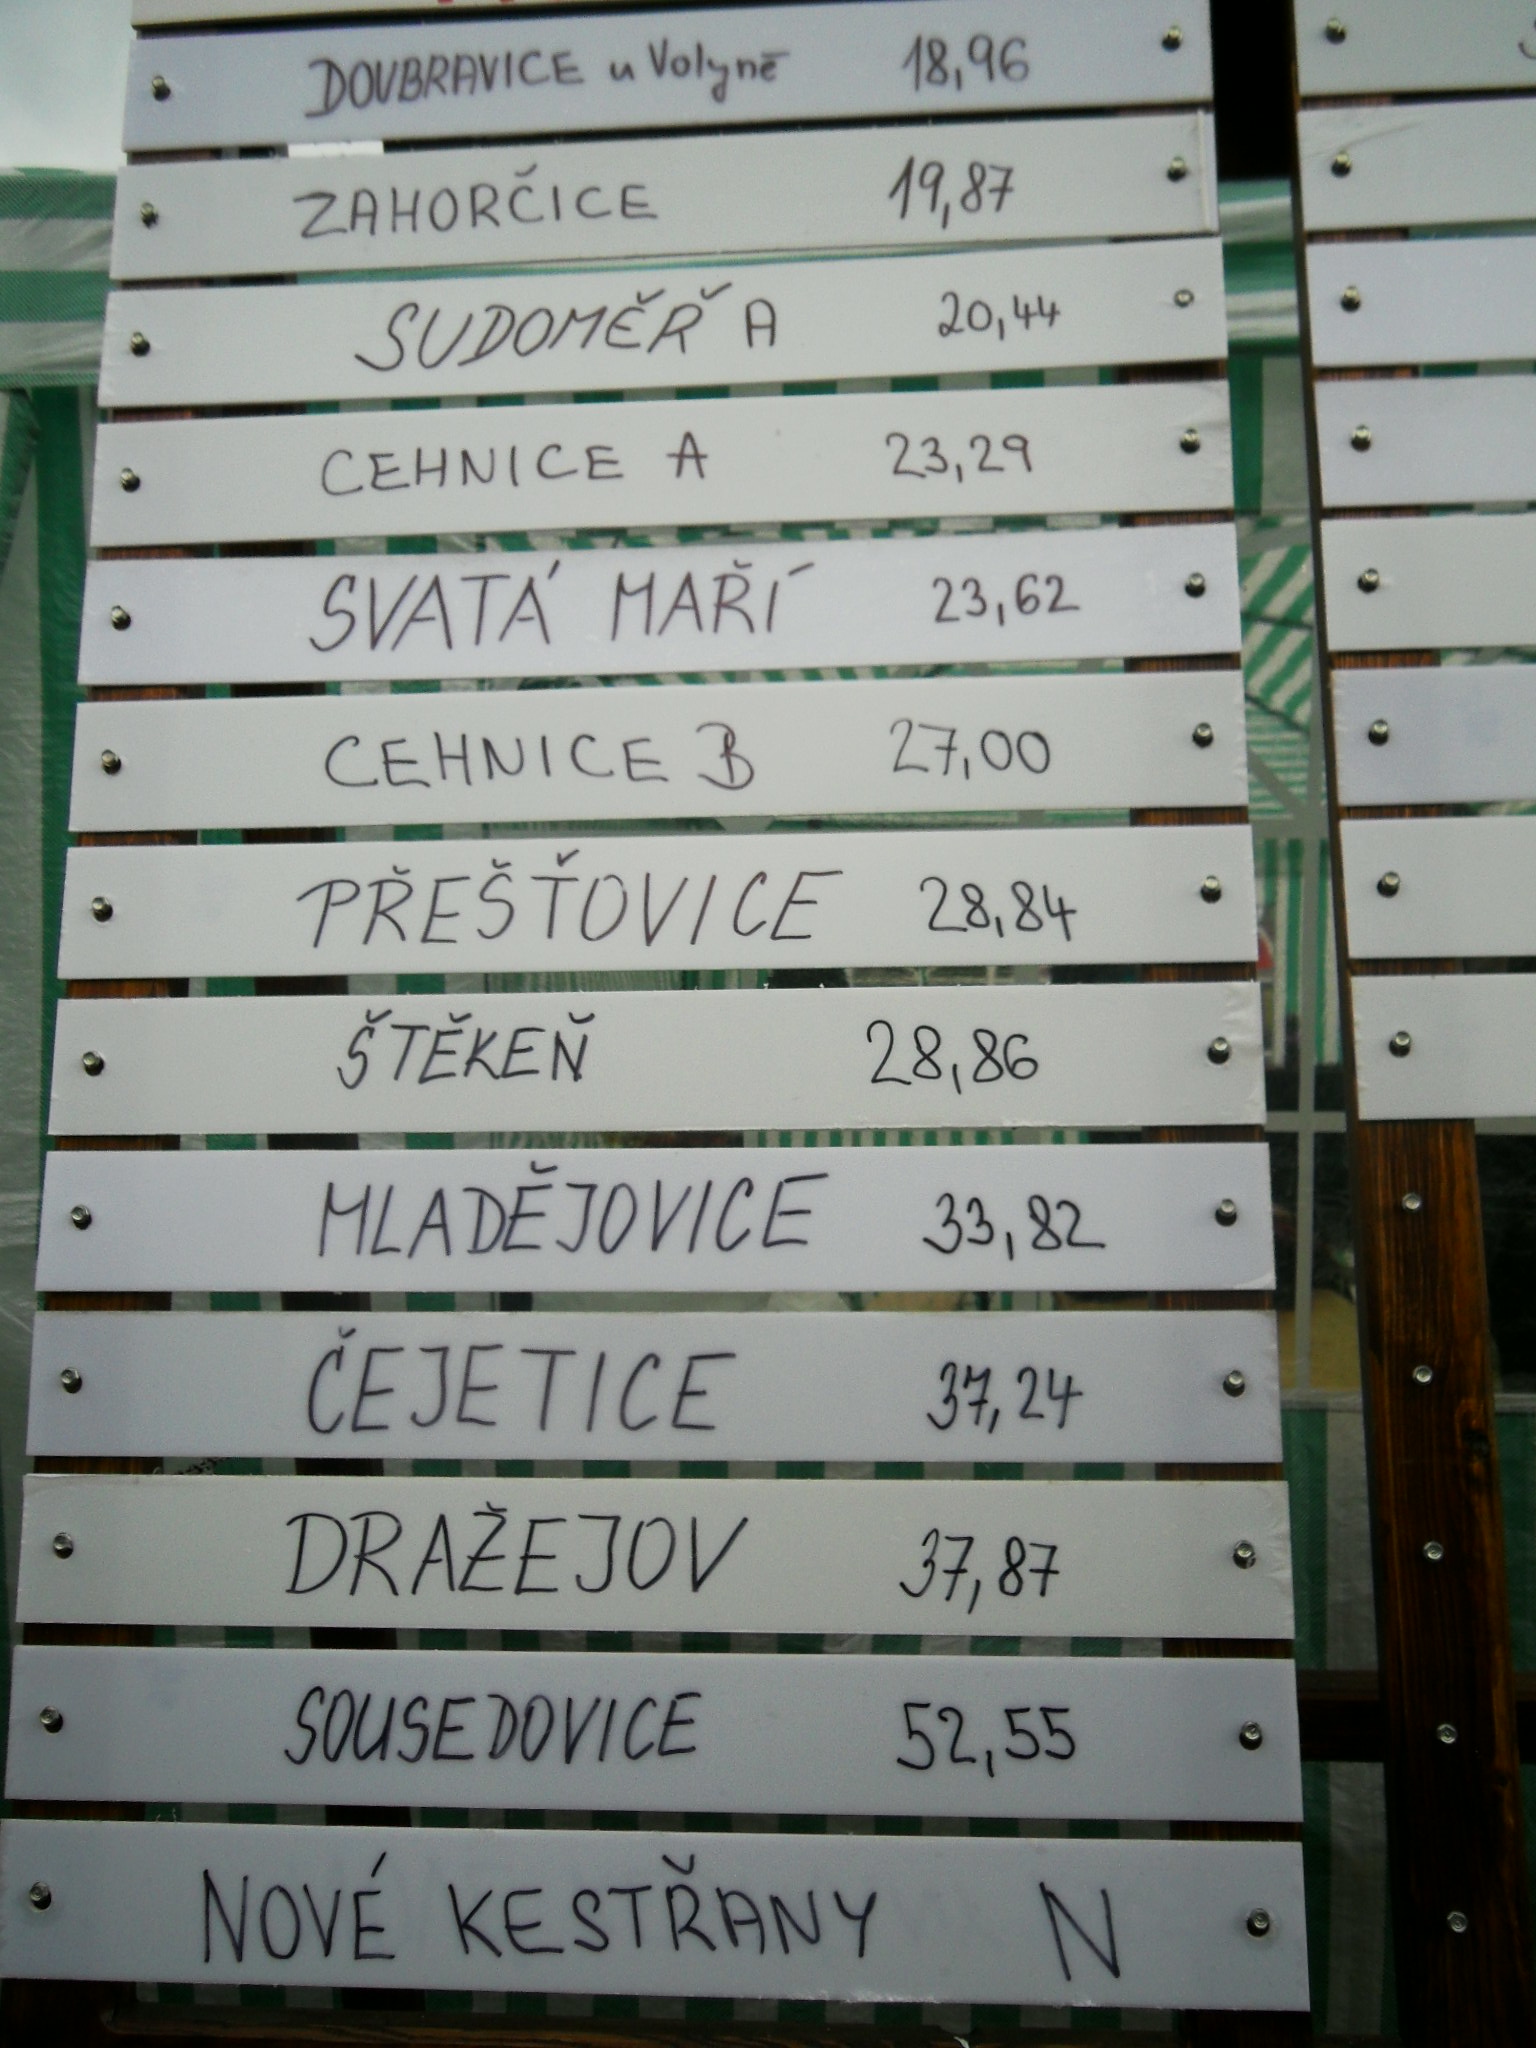 DOUBRAVICE u Volyně 18,96
ZAHORČICE 19,87
SUDOMĚŘ A 20,44
CEHNICE A 23,29
SVATÁ MAŘÍ 23,62
CEHNICE B 27,00
PŘEŠŤOVICE 28,84
ŠTĚKEŇ 28,86
MLADĚJOVICE 33,82
ČEJETICE 37,24
DRAŽEJOV 37,87
SOUSEDOVICE 52,55
NOVÉ KESTŘANY N